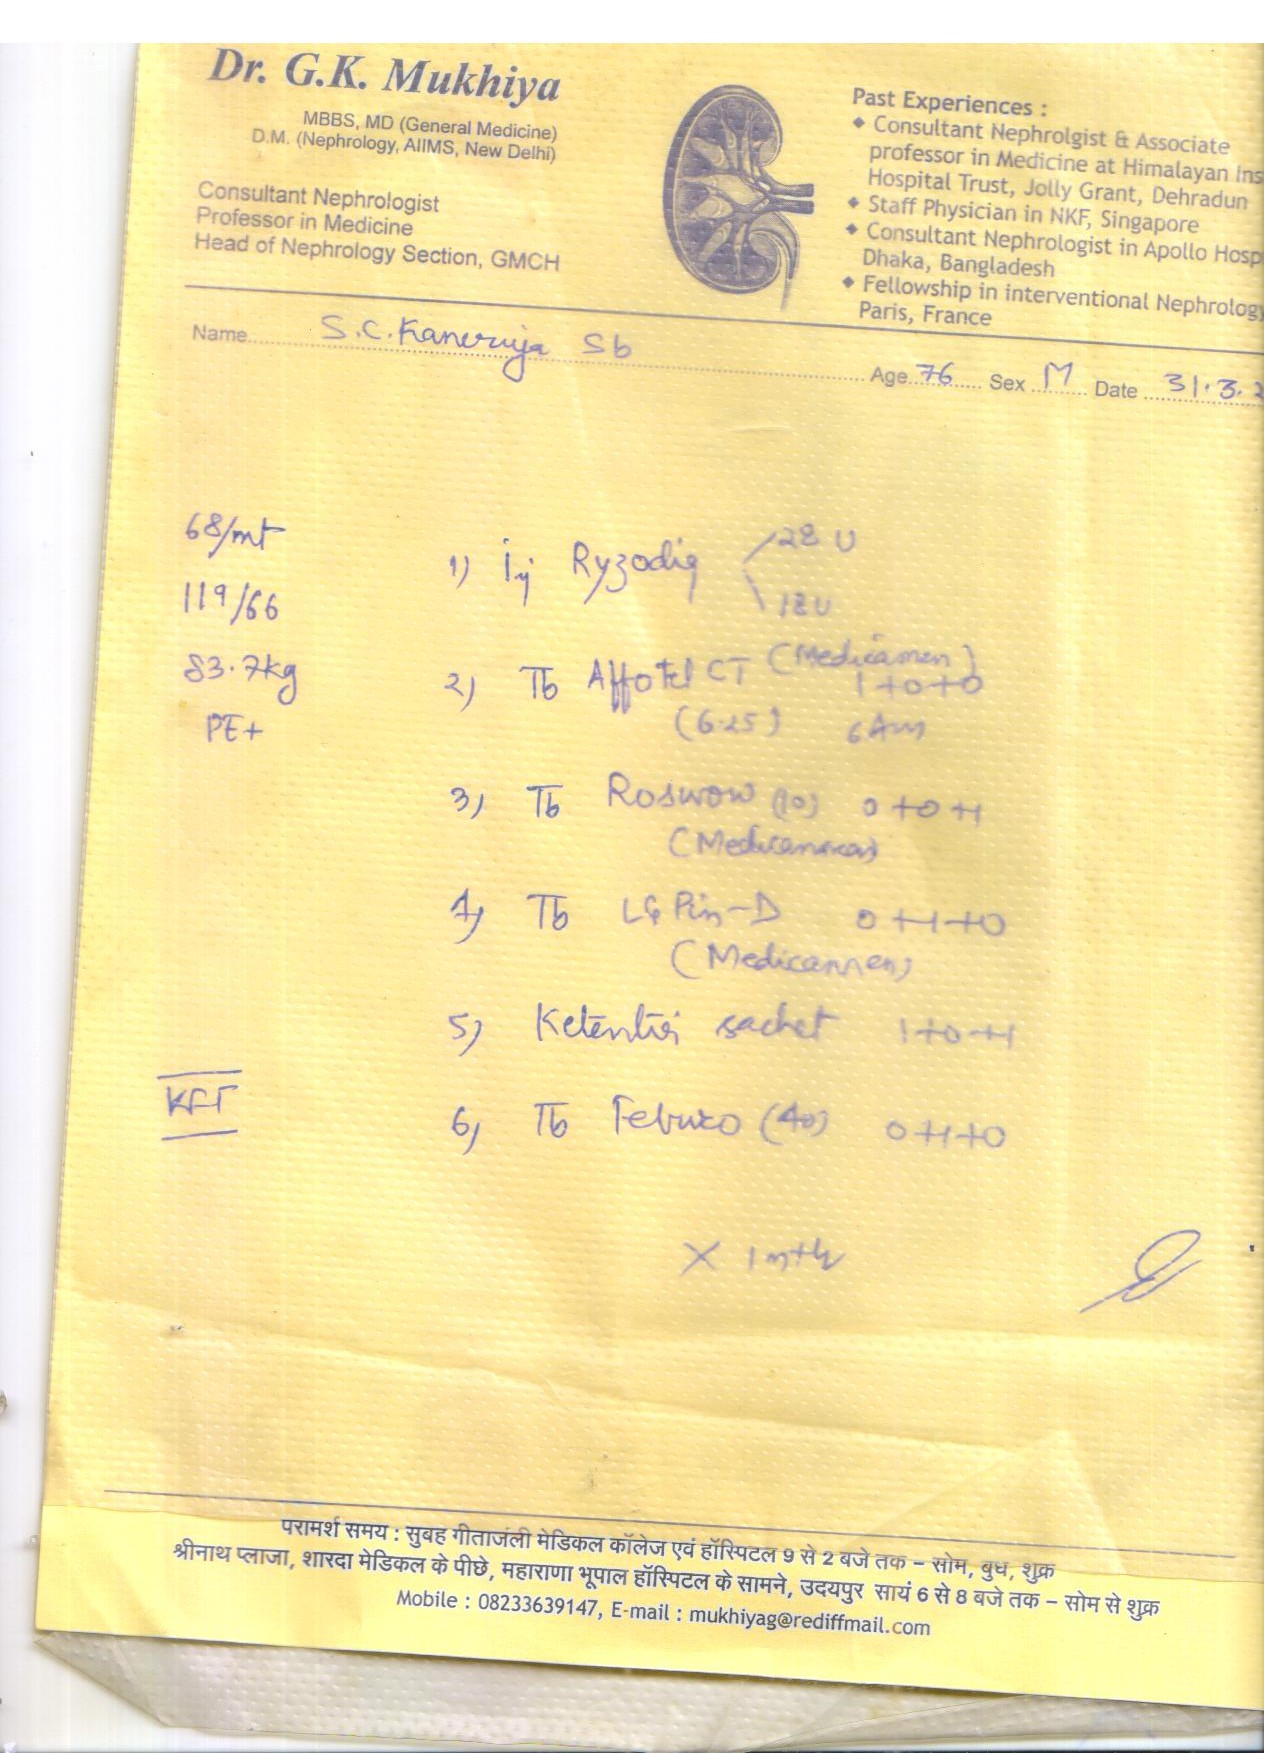 Dr. G.K. Mukhiya
MBBS, MD (General Medicine)
D.M. (Nephrology, AIIMS, New Delhi)
Consultant Nephrologist
Professor in Medicine
Head of Nephrology Section, GMCH
Past Experiences :
◆ Consultant Nephrolgist & Associate
professor in Medicine at Himalayan Ins
Hospital Trust, Jolly Grant, Dehradun
◆ Staff Physician in NKF, Singapore
◆ Consultant Nephrologist in Apollo Hosp
Dhaka, Bangladesh
◆ Fellowship in interventional Nephrology
Paris, France
Name S.C. Sb
Age 76 Sex M Date 31.3.2
68/mt
119/66
83.7kg
PE+
KFT
1) Inj Ryzodig 28 U
18 U
2) Tb CT (Medicamen) 1+0+0
(6.25) 6 Am
3) Tb Roswow (10) 0+0+1
4) Tb LGPin-D 0+1+0
5) sachet 1+0+1
6) Tb (40) 0+1+0
X 1 mth
परामर्श समय : सुबह गीताजंली मेडिकल कॉलेज एवं हॉस्पिटल 9 से 2 बजे तक – सोम, बुध, शुक्र
श्रीनाथ प्लाजा, शारदा मेडिकल के पीछे, महाराणा भूपाल हॉस्पिटल के सामने, उदयपुर सायं 6 से 8 बजे तक – सोम से शुक्र
Mobile : 08233639147, E-mail : mukhiyag@rediffmail.com